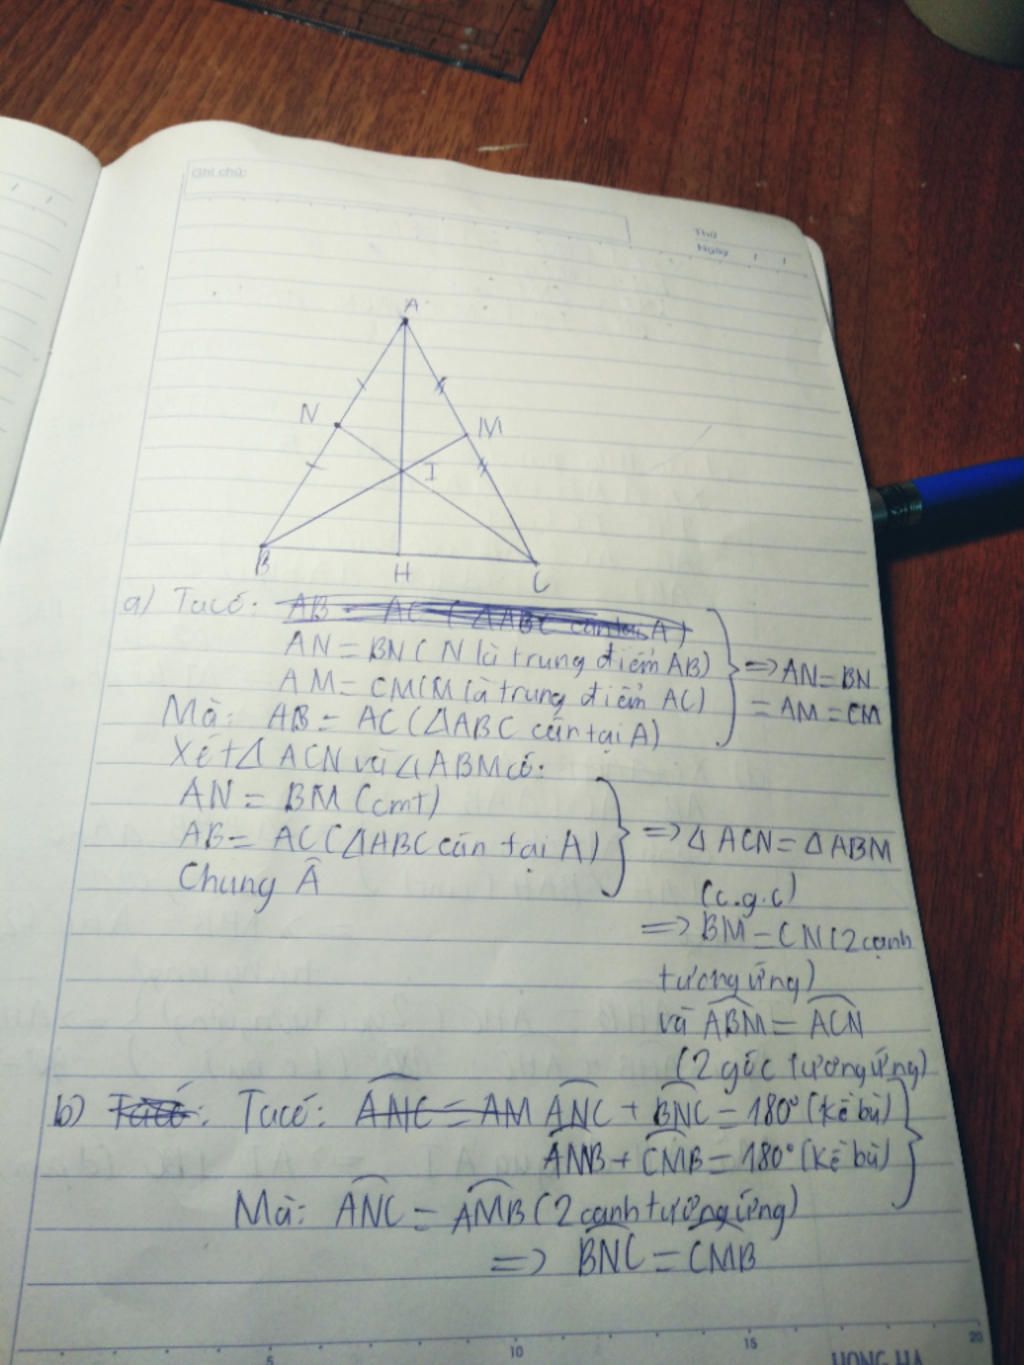 Ghi chú:
Thứ
Ngày / /
A
N
M
I
B
H
C
a) Ta có: AB = AC (ΔABC cân tại A)
AN = BN (N là trung điểm AB)
AM = CM (M là trung điểm AC)
Mà: AB = AC (ΔABC cân tại A)
=> AN = BN
= AM = CM
Xét Δ ACN và Δ ABM có:
AN = BM (cmt)
AB = AC (ΔABC cân tại A)
Chung Â
=> Δ ACN = Δ ABM
(c.g.c)
=> BM = CN (2 cạnh
tương ứng)
và ABM = ACN
(2 góc tương ứng)
b) Ta có: Ta có: ANC = AM ANC + BNC = 180° (kề bù)
AMB + CMB = 180° (kề bù)
Mà: ANC = AMB (2 cạnh tương ứng)
=> BNC = CMB
5 10 15 20
HONG HA